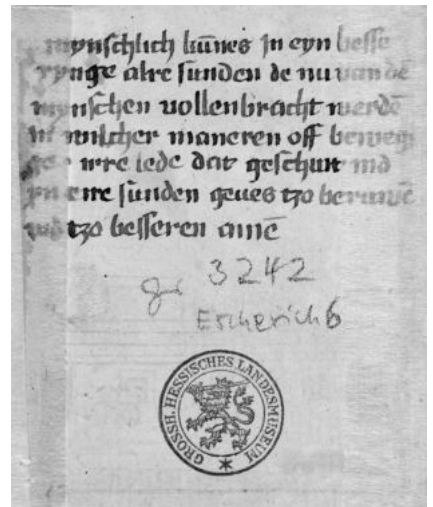 mynschlich kūnes in eyn besse
rynge alre sunden de nu van dē
mynschen vollenbracht werdē
in wilcher maneren off beweg
wre lede dat geschut
sunden geves tzo beruwē
tzo besseren amē
gr 3242
Escherich 6
GROSSH. HESSISCHES LANDESMUSEUM